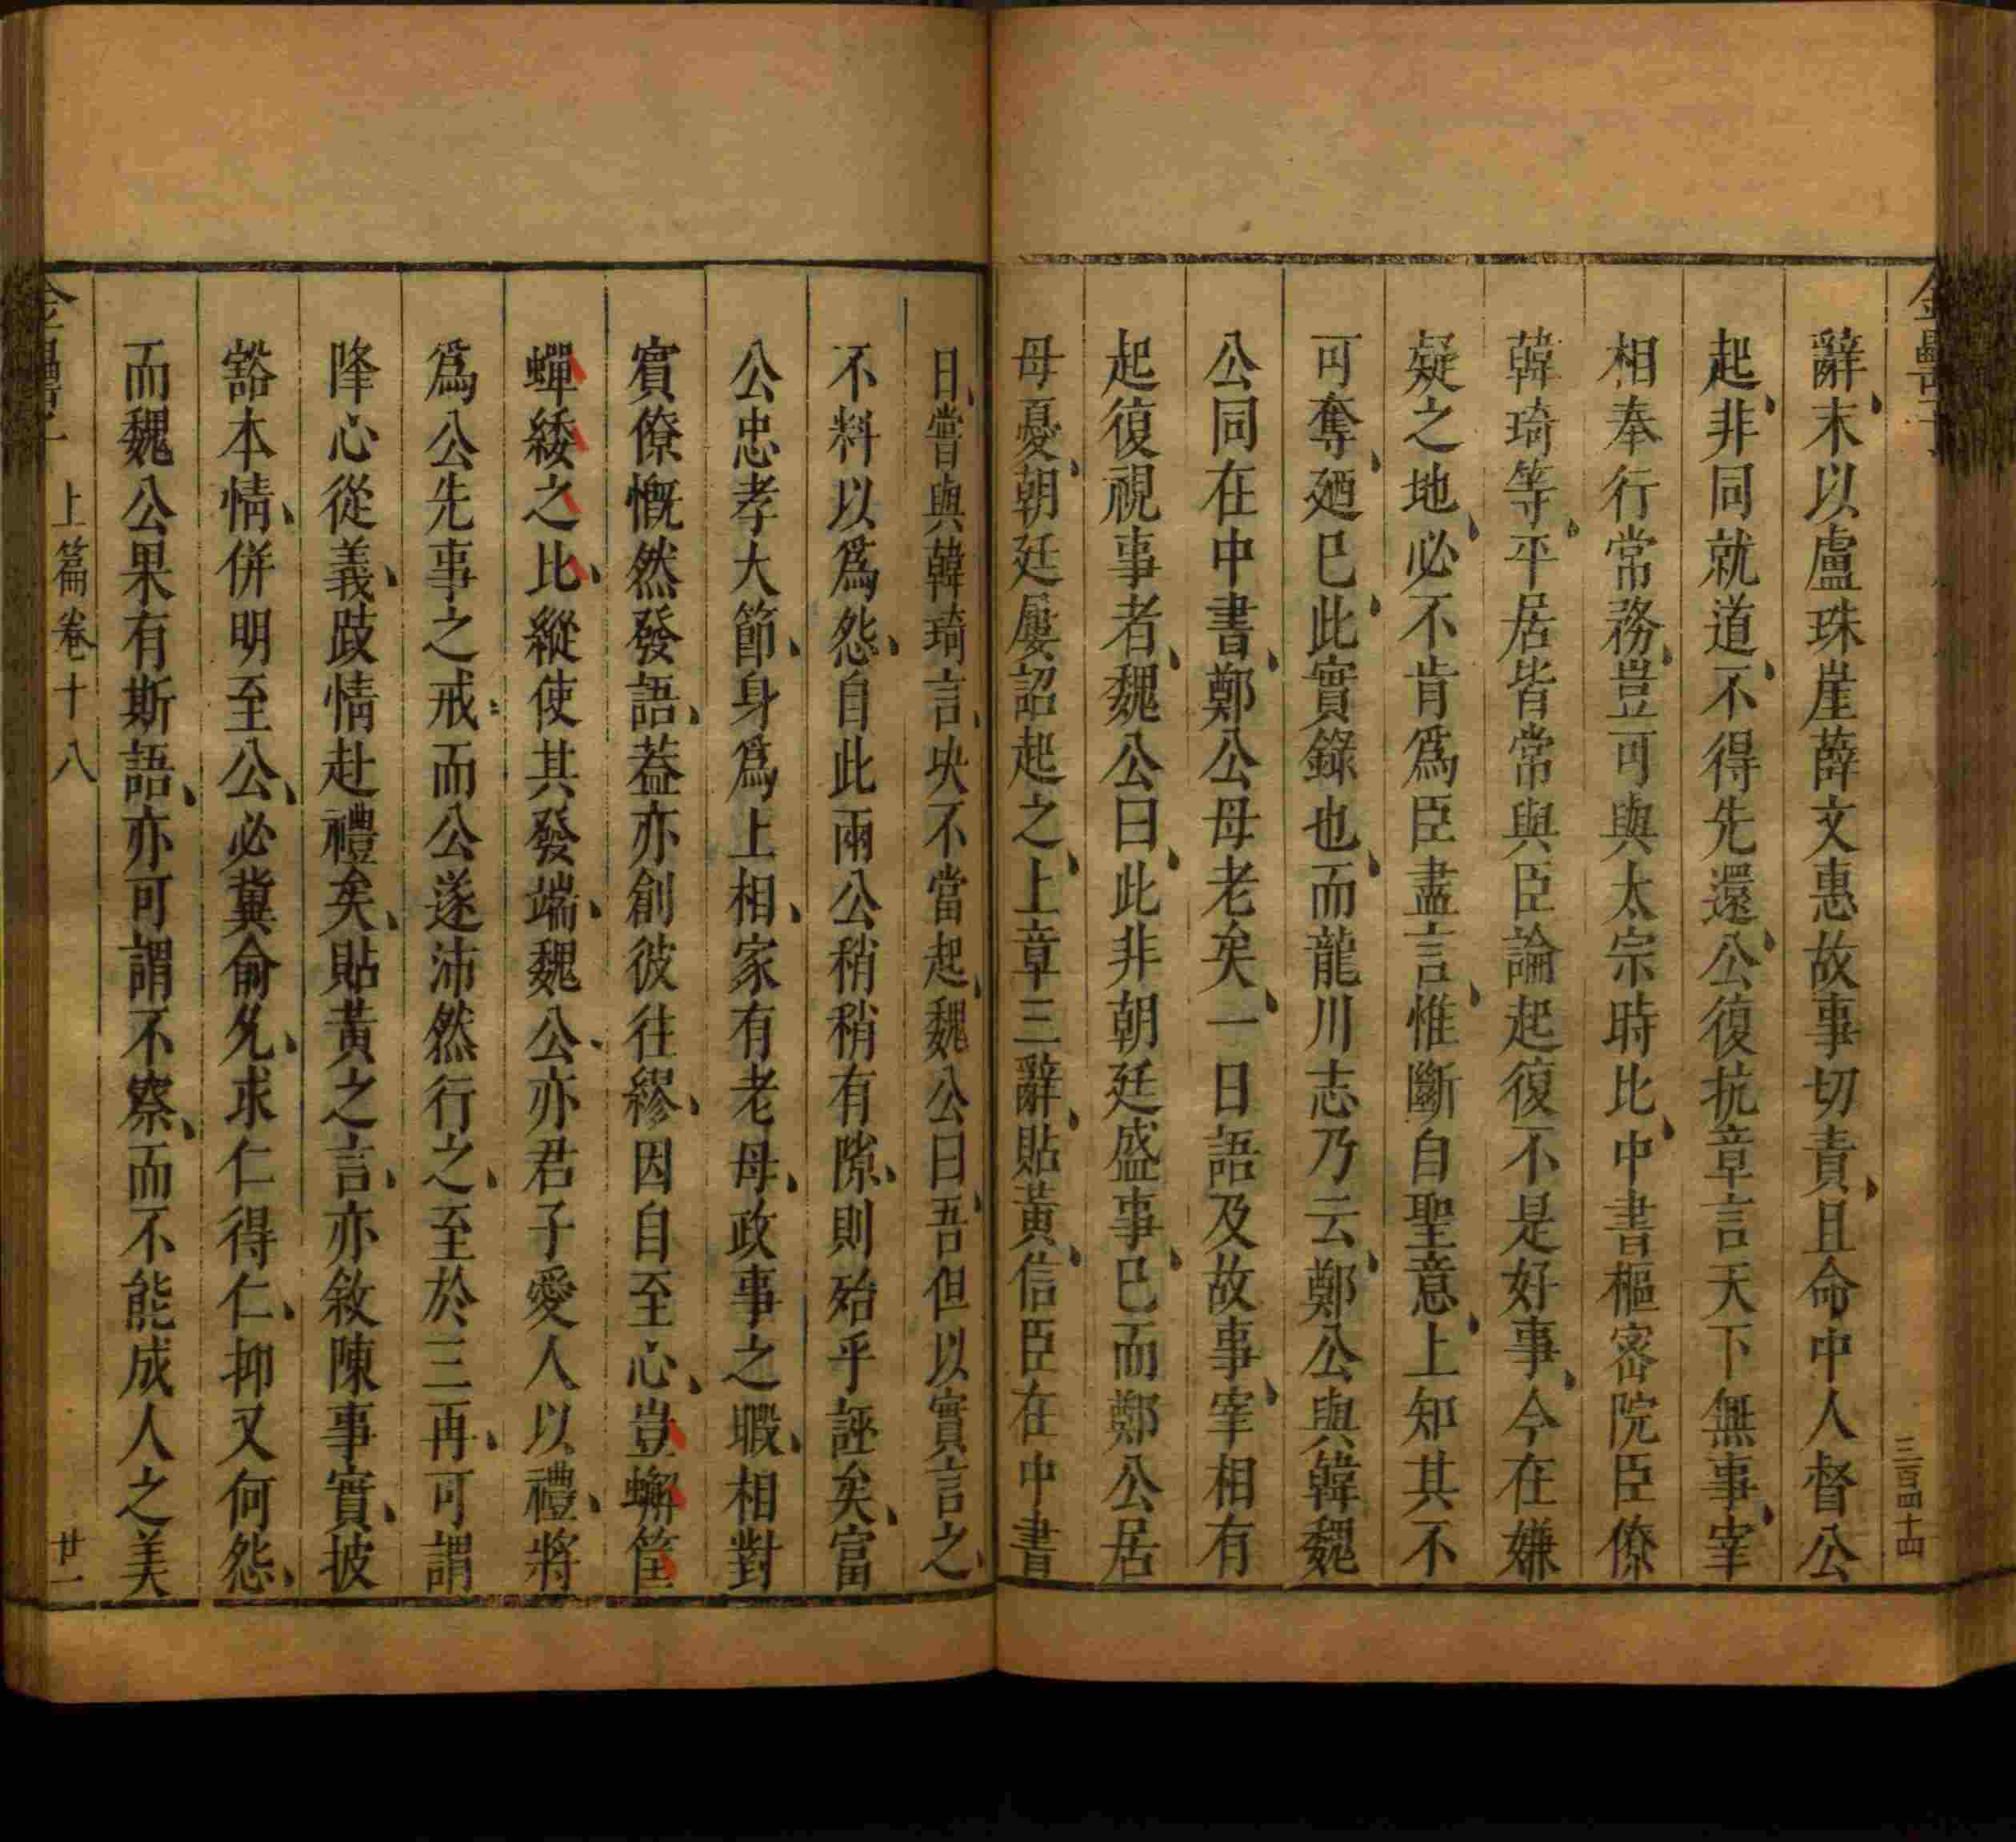 三百四十四
辭末以盧珠崖薛文惠故事切責且命中人督公
起非同就道不得先還公復抗章言天下無事宰
相奉行常務豈可與太宗時比中書樞密院臣僚
韓琦等平居皆常與臣論起復不是好事今在嫌
疑之地必不肯爲臣盡言惟斷自聖意上知其不
可奪廼巳此實錄也而龍川志乃云鄭公與韓魏
公同在中書鄭公母老矣一日語及故事宰相有
起復視事者魏公曰此非朝廷盛事已而鄭公居
母憂朝廷屢詔起之上章三辭貼黃信臣在中書
日嘗與韓琦言决不當起魏公曰吾但以實言之
不料以爲怨自此兩公稍稍有隙則殆乎誣矣富
公忠孝大節身爲上相家有老母政事之暇相對
賓僚慨然發語葢亦創彼往繆因自至心豈蠏筐
蟬緌之比縱使其發端魏公亦君子愛人以禮將
爲公先事之戒而公遂沛然行之至於三再可謂
降心從義跂情赴禮矣貼黃之言亦敘陳事實披
豁本情併明至公必冀俞允求仁得仁抑又何怨
而魏公果有斯語亦可謂不察而不能成人之美
上篇卷十八
廿一